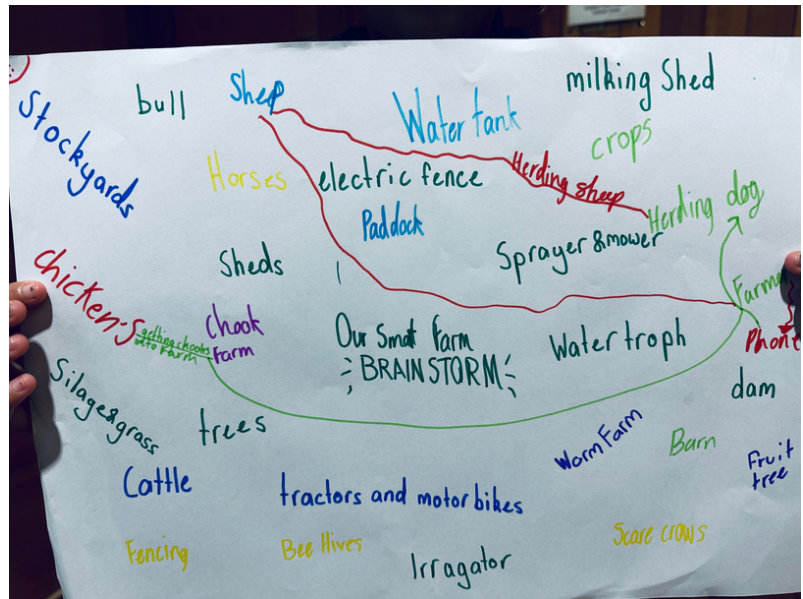 bull
Sheep
milking Shed
Stockyards
Water tank
crops
Horses
electric fence
Herding sheep
Herding dog
Paddock
Sprayer & mower
Sheds
Chicken's
getting chooks
into farm
Chook
Farm
Our Smart Farm
BRAINSTORM
Water troph
Farmer
Phone
Silage & grass
trees
dam
Worm Farm
Barn
Fruit
tree
Cattle
tractors and motorbikes
Fencing
Bee Hives
Irragator
Scare crows